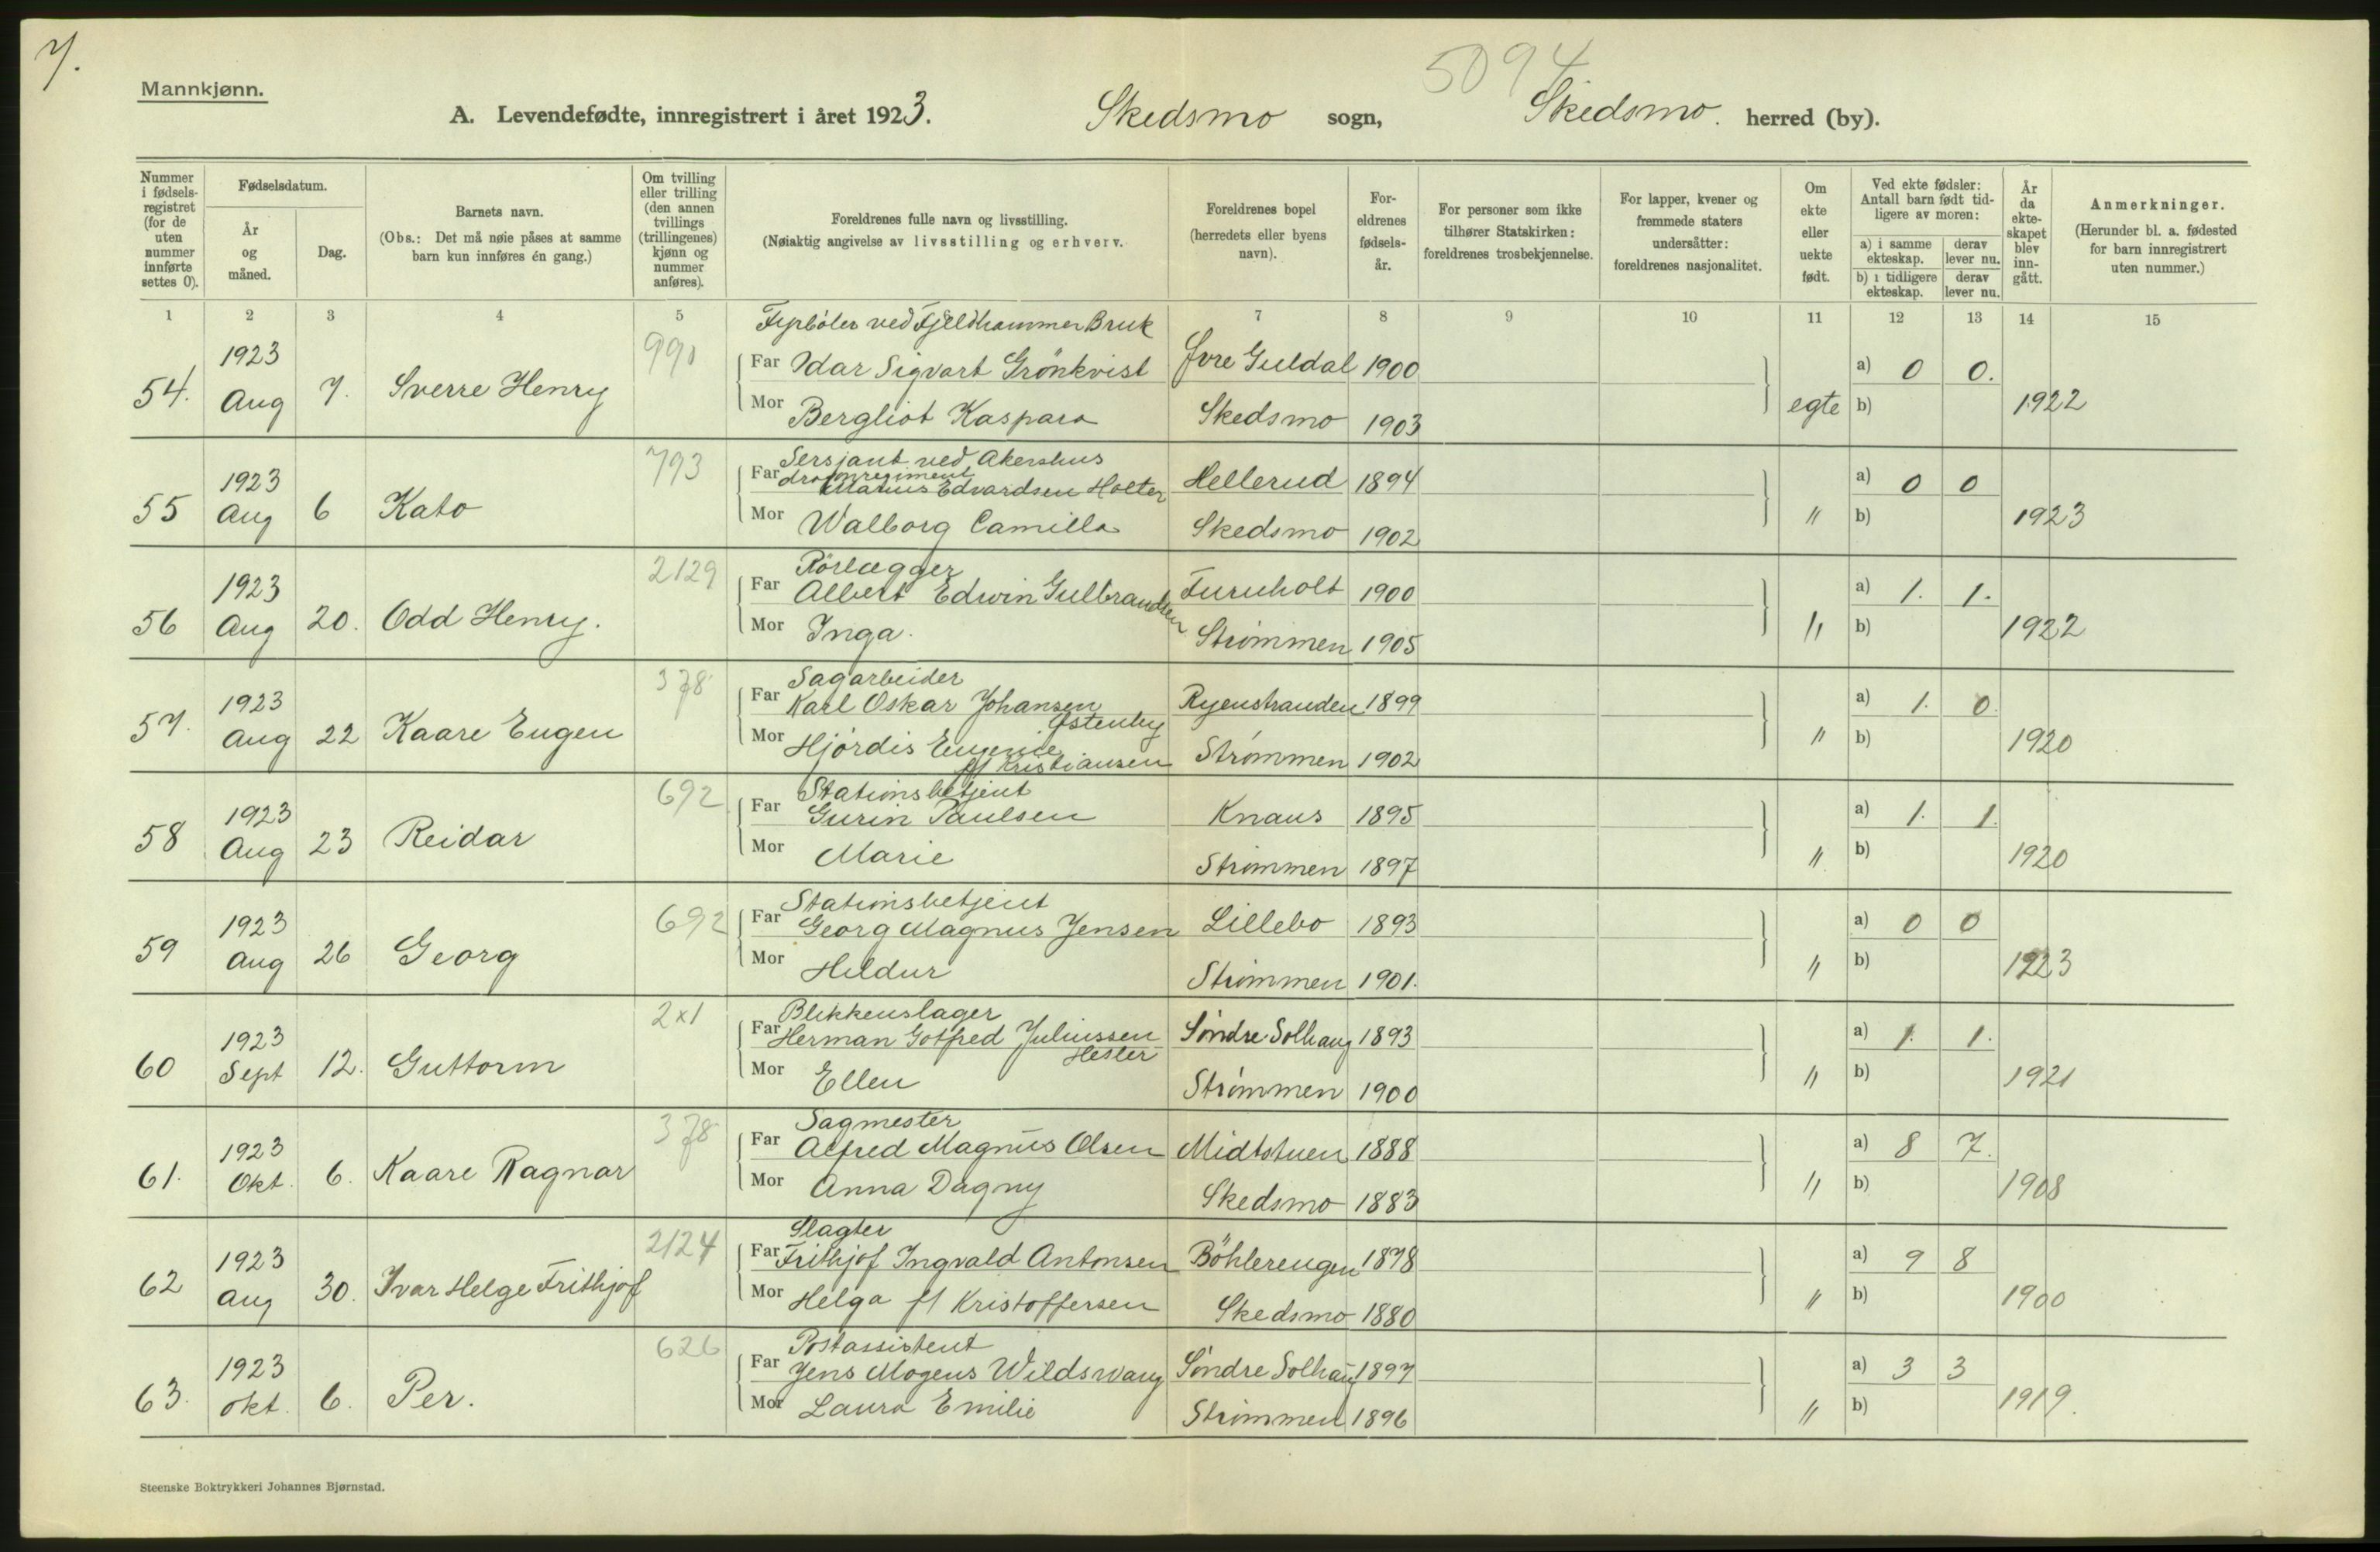 7.
5094
Mannkjønn.
A. Levendefødte, innregistrert i året 1923. Skedsmo sogn, Skedsmo. herred (by).
Nummer i fødsels-registret (for de uten nummer innførte settes 0).
Fødselsdatum.
År og måned.
Dag.
Barnets navn.
(Obs.: Det må nøie påses at samme barn kun innføres én gang.)
Om tvilling eller trilling (den annen tvillings (trillingenes) kjønn og nummer anføres).
Foreldrenes fulle navn og livsstilling.
(Nøiaktig angivelse av livsstilling og erhverv.
Foreldrenes bopel (herredets eller byens navn).
For-eldrenes fødsels-år.
For personer som ikke tilhører Statskirken: foreldrenes trosbekjennelse.
For lapper, kvener og fremmede staters undersåtter: foreldrenes nasjonalitet.
Om ekte eller uekte født.
Ved ekte fødsler: Antall barn født tid-ligere av moren:
a) i samme ekteskap. derav lever nu.
b) i tidligere ekteskap. derav lever nu.
År da ekte-skapet blev inn-gått.
Anmerkninger.
(Herunder bl. a. fødested for barn innregistrert uten nummer.)
1 2 3 4 5 7 8 9 10 11 12 13 14 15
Fyrbøter ved Fjeldhammer Bruk
1923 990 Far Idar Sigvart Grönkvist Øvre Guldal 1900 a) 0 0.
54. Aug 7. Sverre Henry Mor Bergliot Kaspara Skedsmo 1903 egte b) 1922
793 Sersjant ved Akershus
1923 Far Marius Edvardsen Holter Hellerud 1894 a) 0 0
55 Aug 6 Kato Mor Walborg Camilla Skedsmo 1902 " b) 1923
2129 Rörlægger
1923 Far Albert Edwin Gulbrandsen Furuholt 1900 a) 1. 1.
56 Aug 20. Odd Henry. Mor Inga. Strømmen 1905 " b) 1922
378 Sagarbeider
1923 Far Karl Oskar Johansen Østenby Ryenstranden 1899 a) 1. 0.
57. Aug 22 Kaare Eugen Mor Hjørdis Eugenie f/ Kristiansen Strømmen 1902 " b) 1920
692 Stationsbetjent
1923 Far Gurin Paulsen Knaus 1895 a) 1. 1.
58 Aug 23 Reidar Mor Marie Strømmen 1897 " b) 1920
Stationsbetjent
1923 692 Far Georg Magnus Jensen Lillebo 1893 a) 0 0
59 Aug 26 Georg Mor Hildur Strømmen 1901. " b) 1923
2x1 Blikkenslager
1923 Far Herman Gotfred Juliussen Hester Søndre Solhaug 1893 a) 1. 1.
60 Sept 12. Guttorm Mor Ellen Strømmen 1900 " b) 1921
378 Sagmester
1923 Far Alfred Magnus Olsen Midtstuen 1888 a) 8 7.
61. Okt. 6. Kaare Ragnar Mor Anna Dagny Skedsmo 1883 " b) 1908
2124 Slagter
1923 Far Frithjof Ingvald Antonsen Böhlerengen 1878 a) 9 8
62 Aug 30. Ivar Helge Frithjof Mor Helga f/ Kristoffersen Skedsmo 1880 " b) 1900
626 Postassistent
1923 Far Jens Mogens Wildswang Søndre Solhaug 1897 a) 3 3
63. Okt. 6. Per. Mor Laura Emilie Strømmen 1896 " b) 1919.
Steenske Boktrykkeri Johannes Bjørnstad.